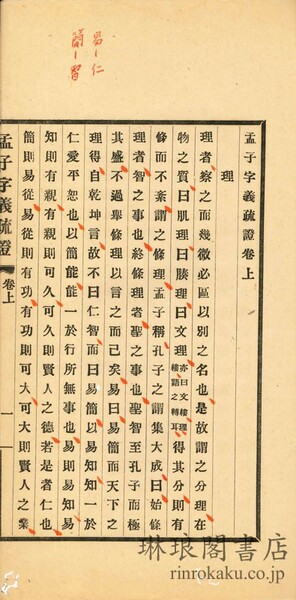 易—仁
簡—智
孟子字義疏證卷上
理
理者察之而幾微必區以別之名也是故謂之分理在
物之質曰肌理曰腠理曰文理亦曰文縷理縷語之轉耳得其分則有
條而不紊謂之條理孟子稱孔子之謂集大成曰始條
理者智之事也終條理者聖之事也聖智至孔子而極
其盛不過舉條理以言之而已矣易曰易簡而天下之
理得自乾坤言故不曰仁智而曰易簡以易知知一於
仁愛平恕也以簡能能一於行所無事也易則易知易
知則有親有親則可久可久則賢人之德若是者仁也
簡則易從易從則有功有功則可大可大則賢人之業
孟子字義疏證
卷上
一
琳琅閣書店
rinrokaku.co.jp